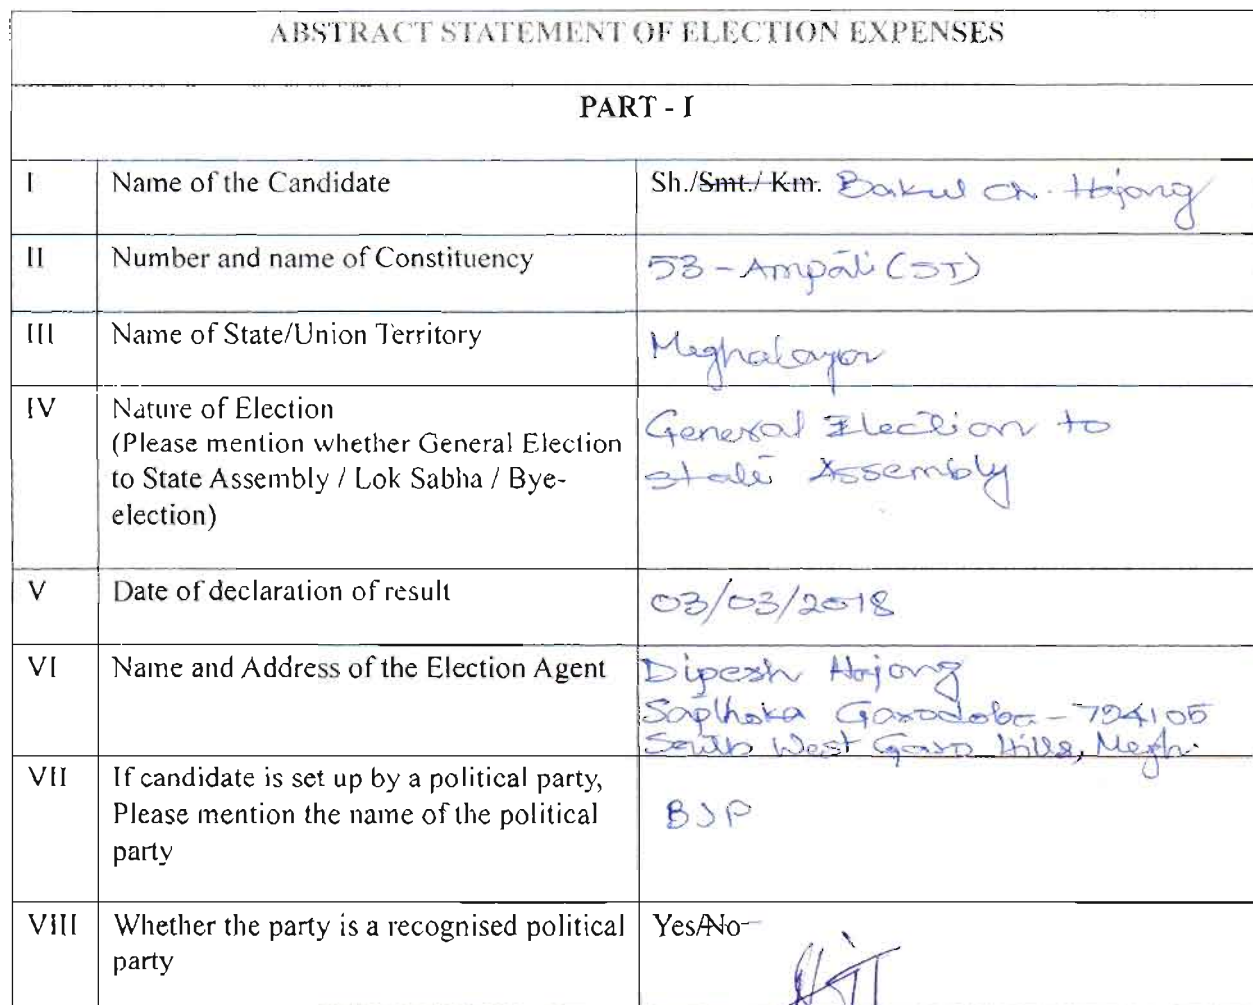 ABSTRACT STATEMENT OF ELECTION EXPENSES
PART - I
I Name of the Candidate Sh./Smt./ Km. Bakul Ch. Hajong
II Number and name of Constituency 53 - Ampati (ST)
III Name of State/Union Territory Meghalaya
IV Nature of Election
(Please mention whether General Election
to State Assembly / Lok Sabha / Bye-
election)
General Election to
state Assembly
V Date of declaration of result 03/03/2018
VI Name and Address of the Election Agent Dipesh Hajong
Garodoba - 794105
South West Garo Hills, Megh.
VII If candidate is set up by a political party,
Please mention the name of the political
party
BJP
VIII Whether the party is a recognised political
party
Yes/No